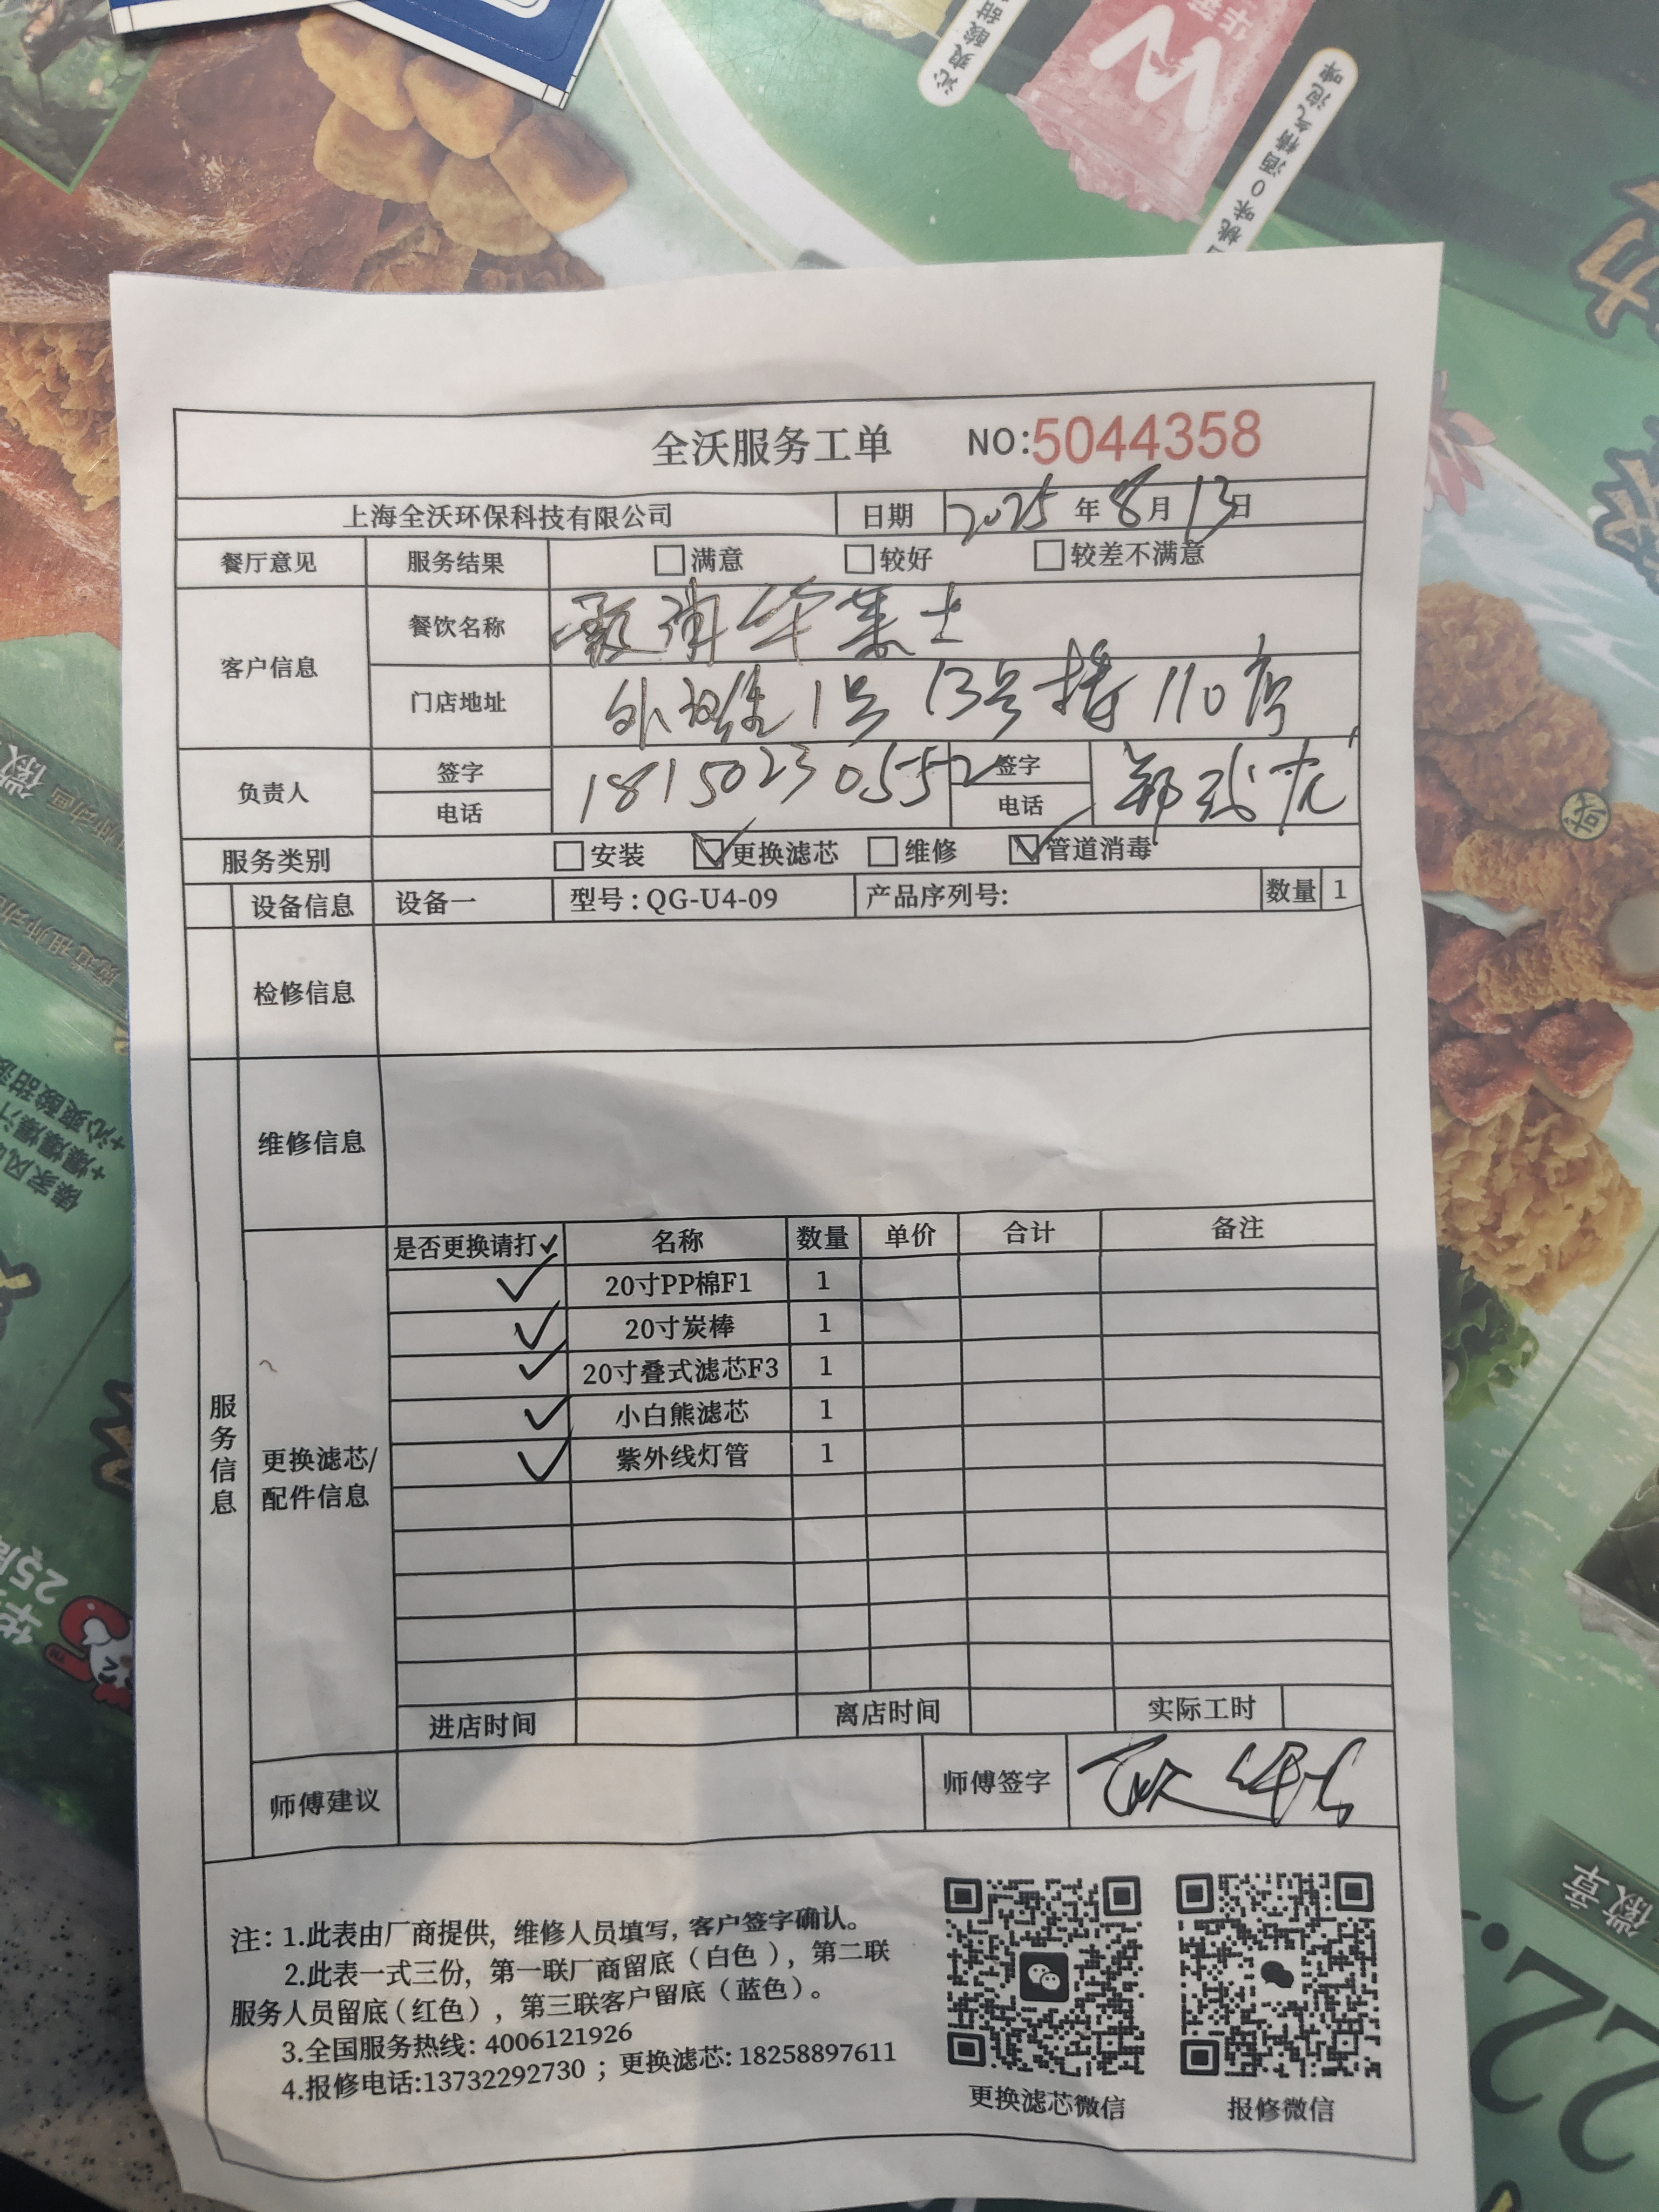 沁爽酸甜
桃味0酒精气泡啤
全沃服务工单 NO:5044358
上海全沃环保科技有限公司 日期 2025年8月13日
餐厅意见 服务结果 □满意 □较好 □较差不满意
客户信息 餐饮名称 华莱士
门店地址 1号13号楼110房
负责人 签字 电话 18150230552 签字 电话 郑
服务类别 □安装 ☑更换滤芯 □维修 ☑管道消毒
设备信息 设备一 型号:QG-U4-09 产品序列号: 数量 1
检修信息
维修信息
服务信息
更换滤芯/配件信息
是否更换请打✓ 名称 数量 单价 合计 备注
✓ 20寸PP棉F1 1
✓ 20寸炭棒 1
✓ 20寸叠式滤芯F3 1
✓ 小白熊滤芯 1
✓ 紫外线灯管 1
进店时间 离店时间 实际工时
师傅建议 师傅签字
注：1.此表由厂商提供，维修人员填写，客户签字确认。
2.此表一式三份，第一联厂商留底（白色），第二联
服务人员留底（红色），第三联客户留底（蓝色）。
3.全国服务热线：4006121926
4.报修电话:13732292730；更换滤芯:18258897611
更换滤芯微信 报修微信
徽章
22.